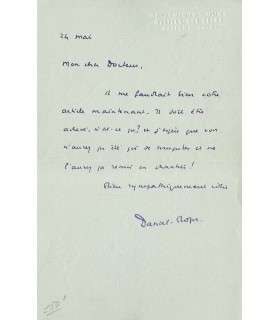 24 mai
Mon cher Docteur,
il me faudrait bien votre
article maintenant. Il doit être
achevé, n'est-ce pas? et j'espère que vous
n'aurez pas été pris de scrupules et ne
l'aurez pas remis en chantier!
Bien sympathiquement vôtre
Daniel-Rops